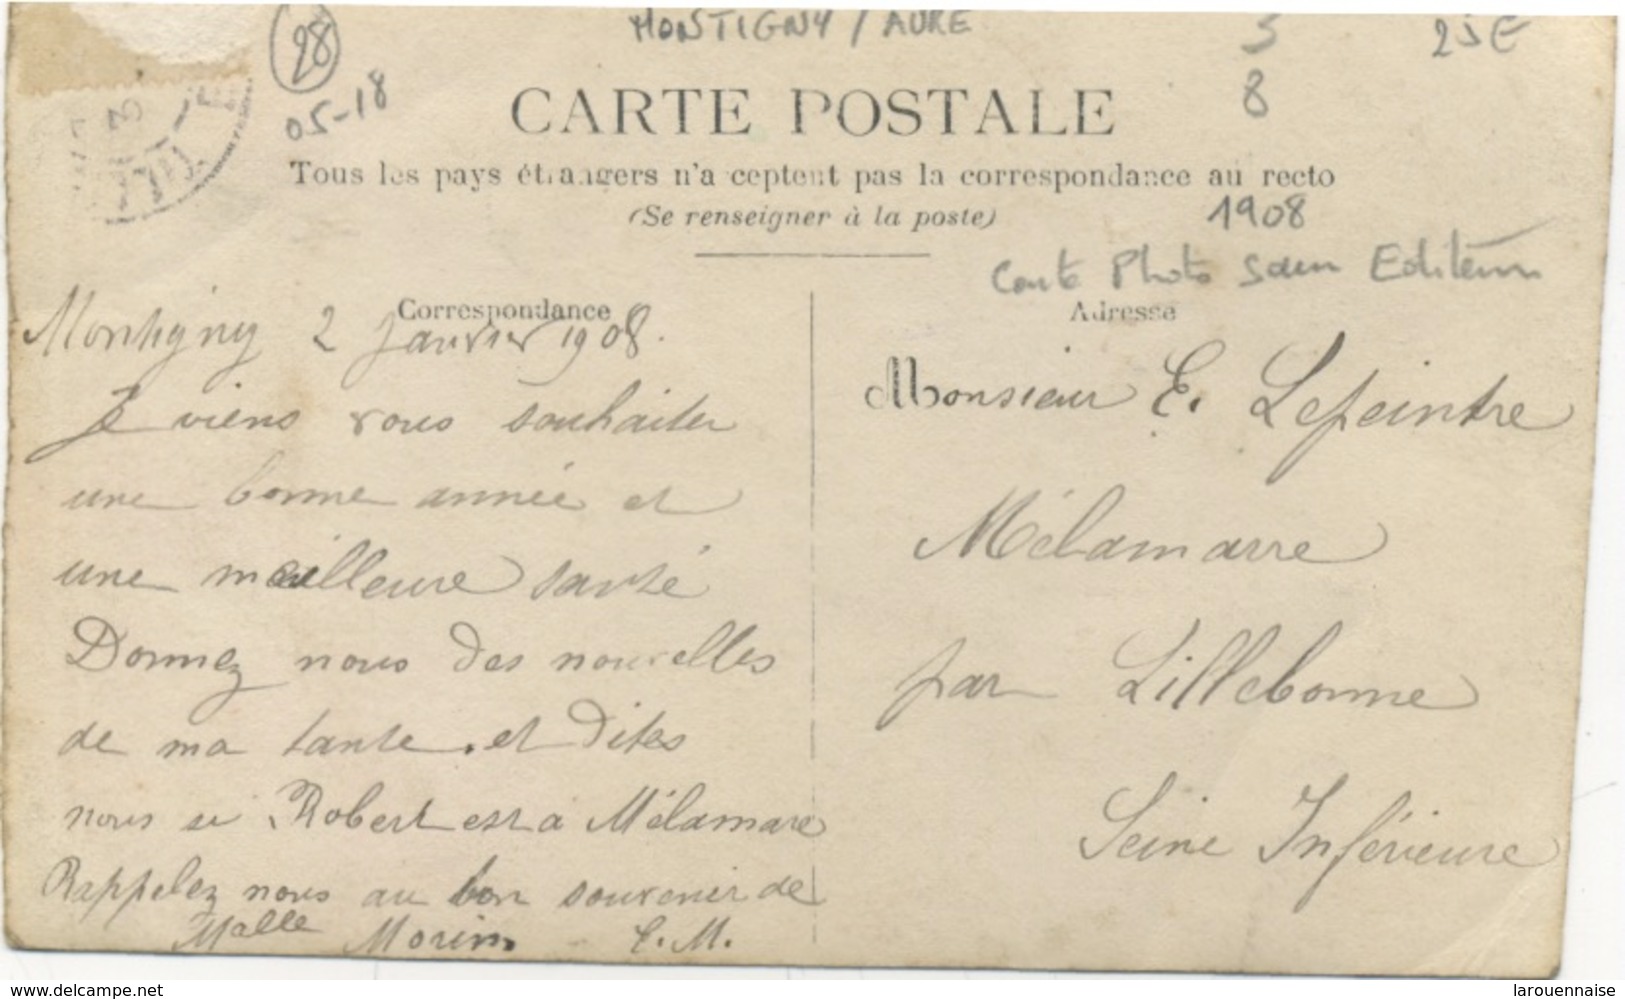 MONTIGNY / AURE
28
05-18
5
8
25E
CARTE POSTALE
Tous les pays étrangers n'acceptent pas la correspondance au recto
(Se renseigner à la poste)
1908
Carte Photo sans Editeur
Correspondance
Montigny 2 Janvier 1908.
Je viens vous souhaiter
une bonne année et
une meilleure santé
Donnez nous des nouvelles
de ma tante. et dites
nous si Robert est à Mélamare
Rappelez nous au bon souvenir de
Malle Morin E. M.
Adresse
Monsieur E. Lepeintre
Mélamarre
par Lillebonne
Seine Inférieure
www.delcampe.net
larouennaise